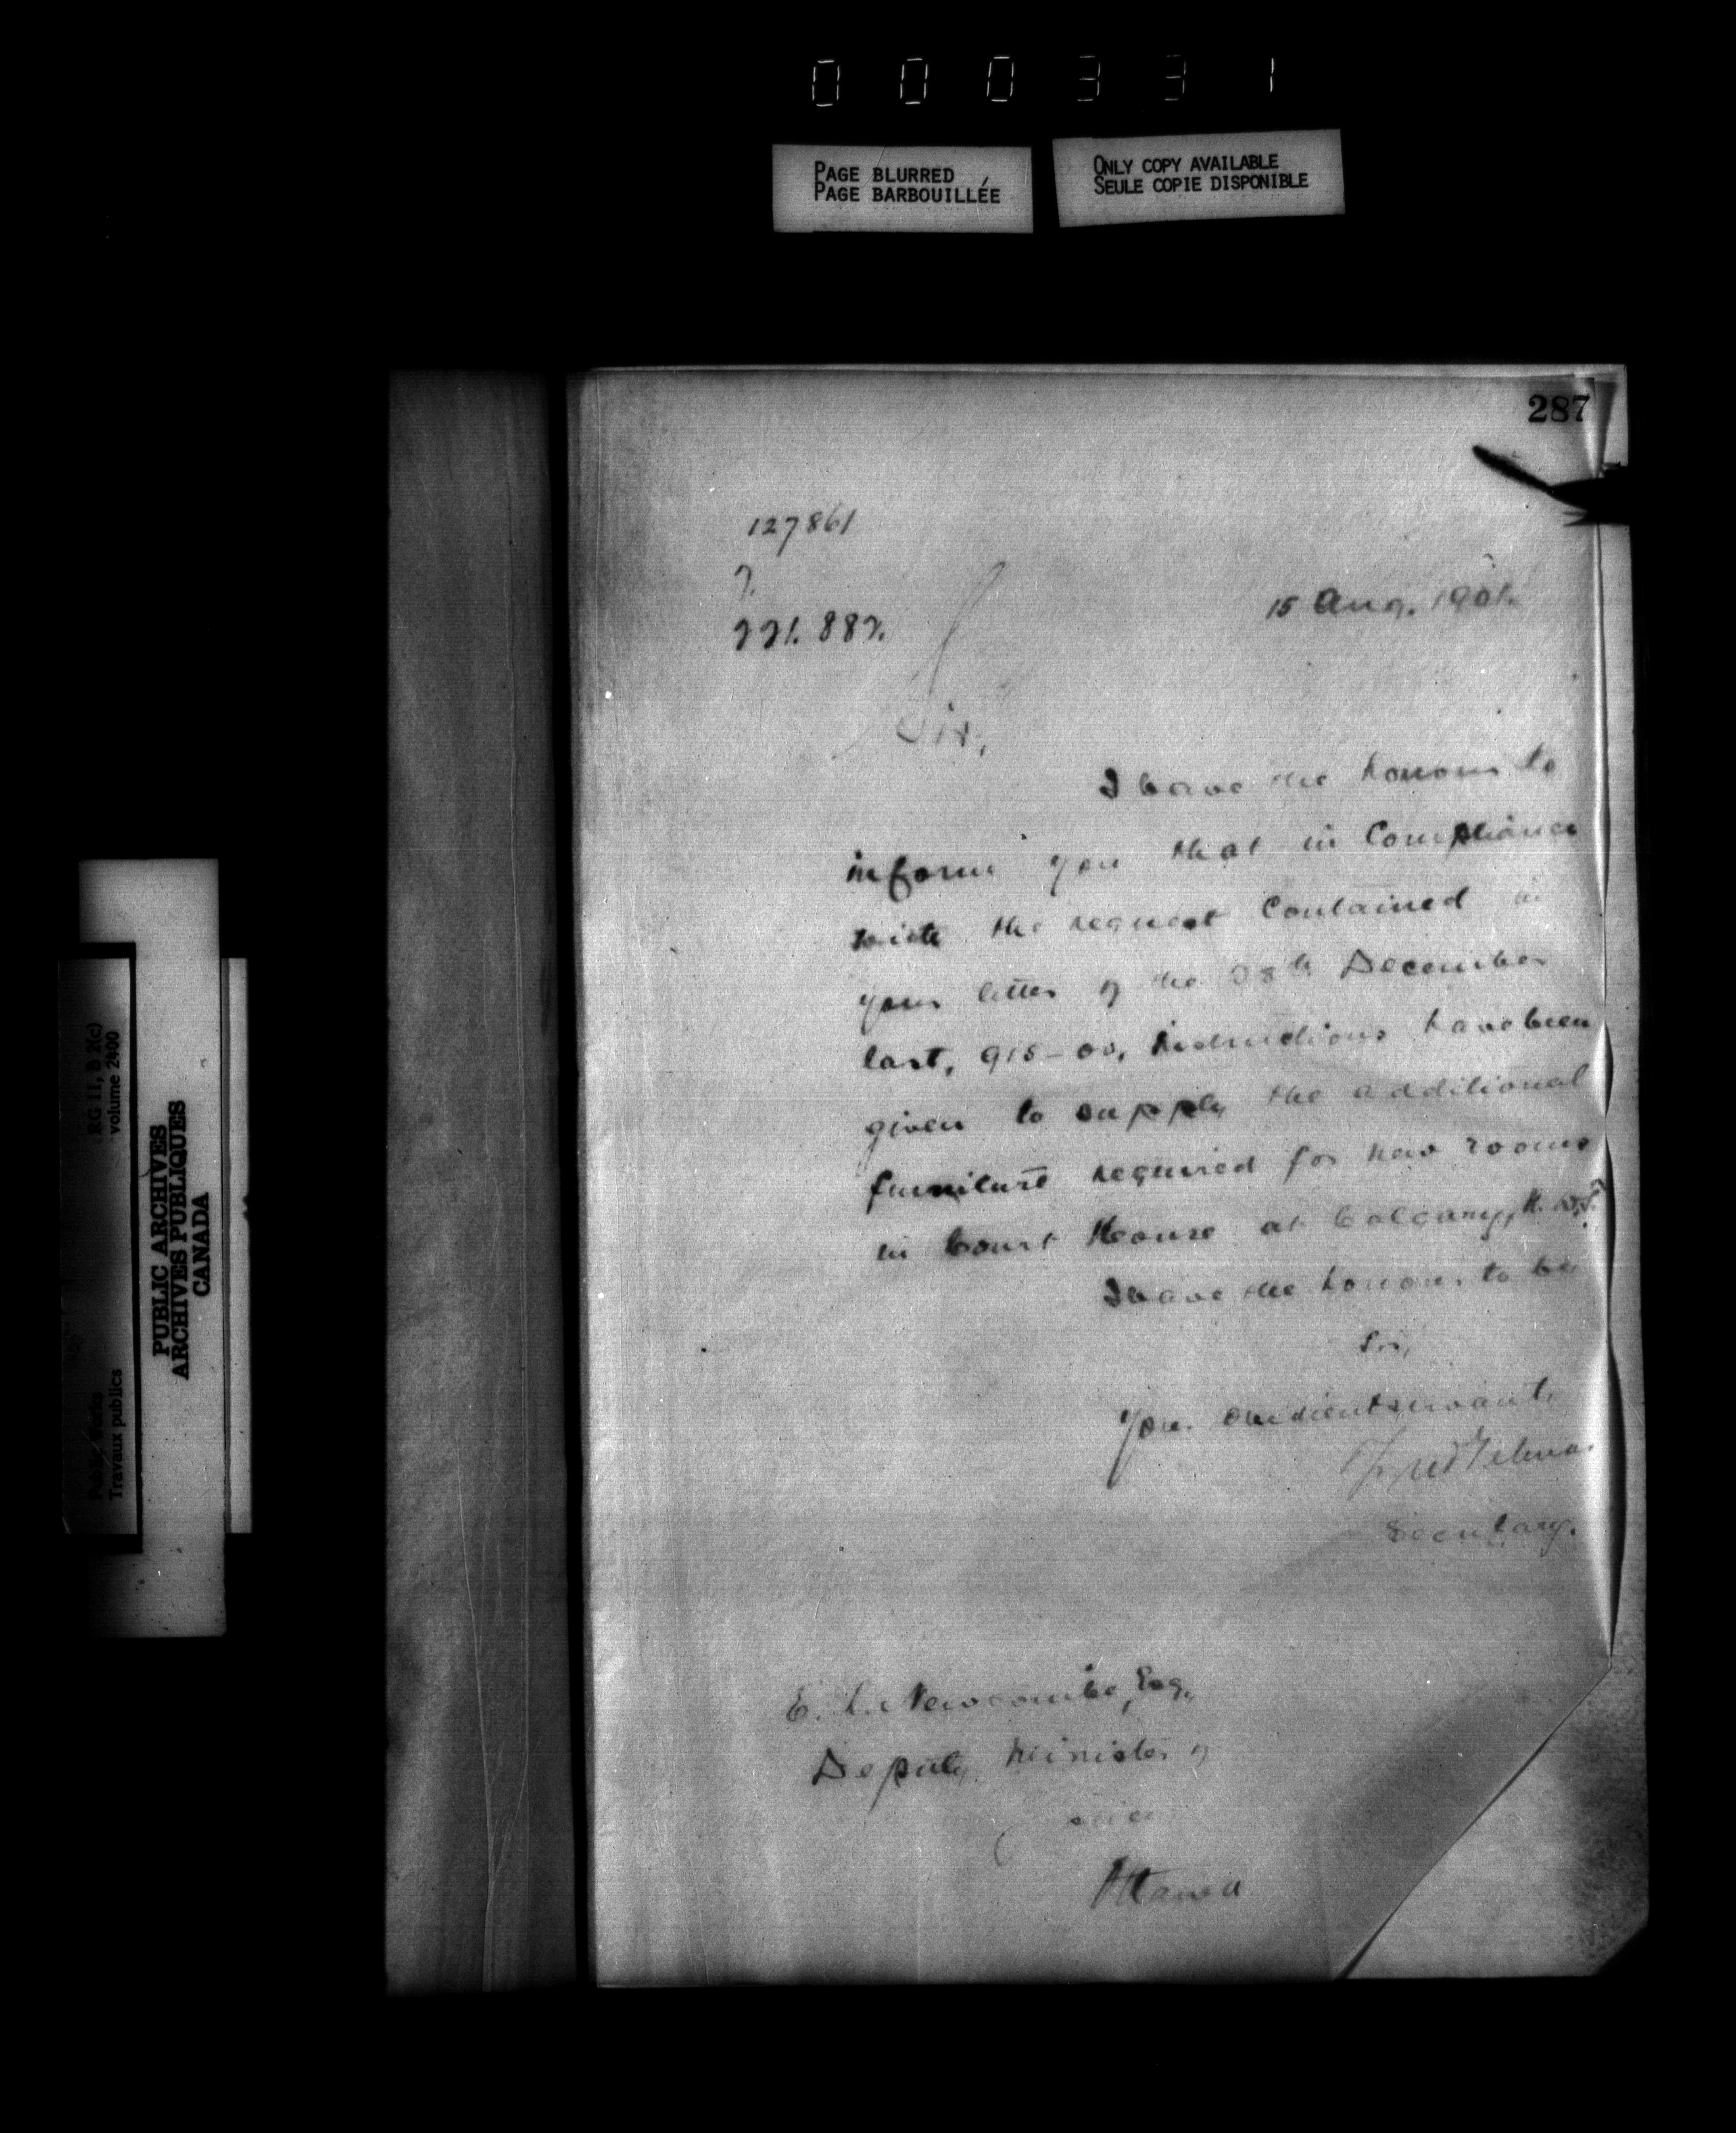 000331
PAGE BLURRED
PAGE BARBOUILLÉE
ONLY COPY AVAILABLE
SEULE COPIE DISPONIBLE
287
127861
15 Aug. 1901.
Sir,
I have the honour to
inform you that in Compliance
with the request Contained in
your letter of the 28th December
last, 915-00, instructions have been
given to supply the additional
furniture required for new rooms
in Court House at Calgary, N. W. T.
I have the honour to be
Sir,
Your obedient servant,
Fred Gélinas
Secretary.
E. L. Newcombe, Esq.,
Deputy Minister of
Justice
Ottawa
RG 11, B 2(c)
volume 2400
Public Works
Travaux publics
PUBLIC ARCHIVES
ARCHIVES PUBLIQUES
CANADA